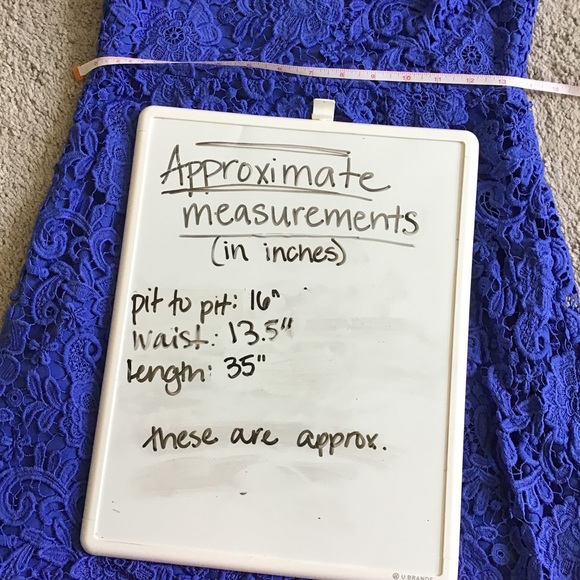 7 8 9 10 11 12 13
Approximate
measurements
(in inches)
pit to pit: 16"
waist: 13.5"
length: 35"
these are approx.
U BRANDS